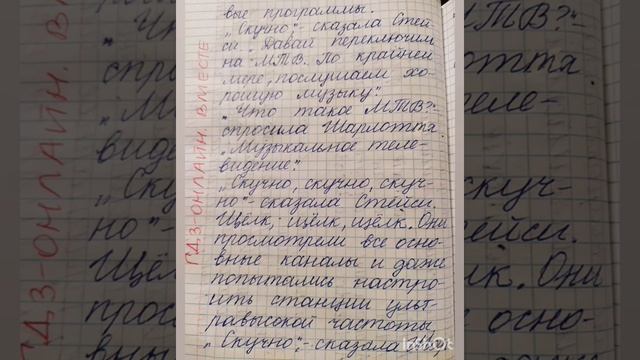 вые программы.
„Скучно",- сказала Стей-
си. „Давай переключим
на МТВ. По крайней
мере, послушаем хо-
рошую музыку".
„Что такое МТВ?"-
спросила Шарлотта.
„Музыкальное теле-
видение".
„Скучно, скучно, скуч-
но"- сказала Стейси.
Щёлк, щёлк, щёлк. Они
просмотрели все осно-
вные каналы и даже
попытались настро-
ить станции ульт-
равысокой частоты.
„Скучно",- сказала
ГДЗ-ОНЛАЙН ВМЕСТЕ